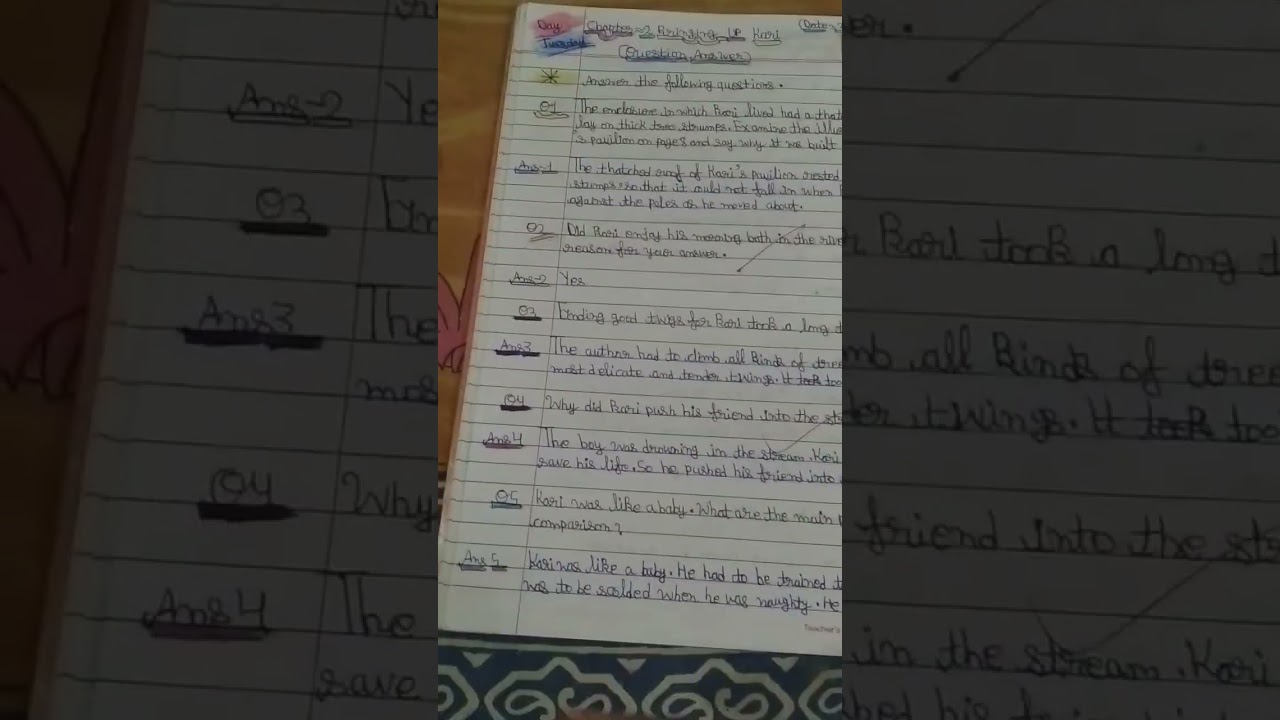 Day
Tuesday
Chapter-2 Bringing up Kari
(Date-
(Question Answer)
Answer the following questions.
Q1 The enclosure in which Kari lived had a that
lay on thick tree strumps. Examine the illu
's pavilion on page 8 and say why it was built
Ans-1 The thatched roof of Kari's pavilion rested
stumps so that it could not fall in when
against the poles as he moved about.
Q2 Did Kari enjoy his morning bath in the rive
reason for your answer.
Ans-2 Yes
Q3 Finding good twigs for Kari took a long t
Ans3 The author had to climb all kinds of tree
most delicate and tender twings. It took too
Q4 Why did Kari push his friend into the st
Ans4 The boy was drowning in the stream. Kari
save his life. So he pushed his friend into
Q5 Kari was like a baby. What are the main
comparison?
Ans 5 Kari was like a baby. He had to be trained t
was to be scolded when he was naughty. He
Teacher's